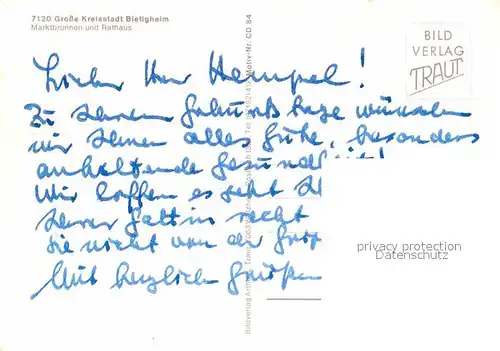 7120 Große Kreisstadt Bietigheim
Marktbrunnen und Rathaus
BILD
VERLAG
TRAUT
Lieber Herr Hempel!
Zu Ihrem Geburtstage wünschen
wir Ihnen alles Gute, besonders
anhaltende Gesundheit!
Wir hoffen es geht
Ihrer Gattin recht
Sie nicht von der
Mit herzlichen Grüßen
Motiv-Nr. CD 84
Bildverlag
privacy protection
Datenschutz